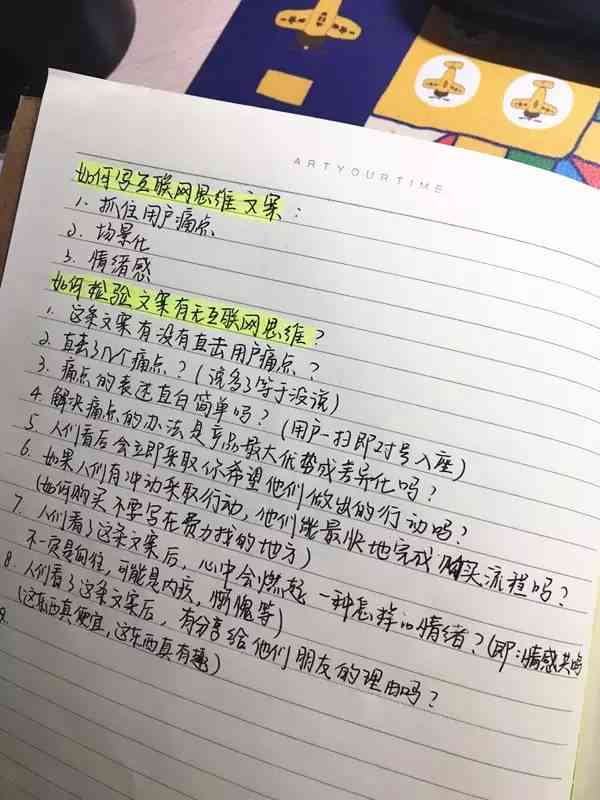 ARTYOURTIME
如何写互联网思维文案：
1. 抓住用户痛点
2. 场景化
3. 情绪感
如何检验文案有无互联网思维？
1. 这条文案有没有直击用户痛点？
2. 直击了几个痛点？(说多了等于没说)
3. 痛点的表述直白简单吗？(用户一扫即对号入座)
4. 解决痛点的办法是产品最大优势或差异化吗？
5. 人们看后会立即采取你希望他们做出的行动吗？
6. 如果人们有冲动采取行动，他们能最快地完成购买流程吗？
(如何购买不要写在费力找的地方)
7. 人们看了这条文案后，心中会燃起一种怎样的情绪？(即：情感共鸣
不一定是向往，可能是内疚，惭愧等)
8. 人们看了这条文案后，有分享给他们朋友的理由吗？
(这东西真便宜，这东西真有趣)
9.